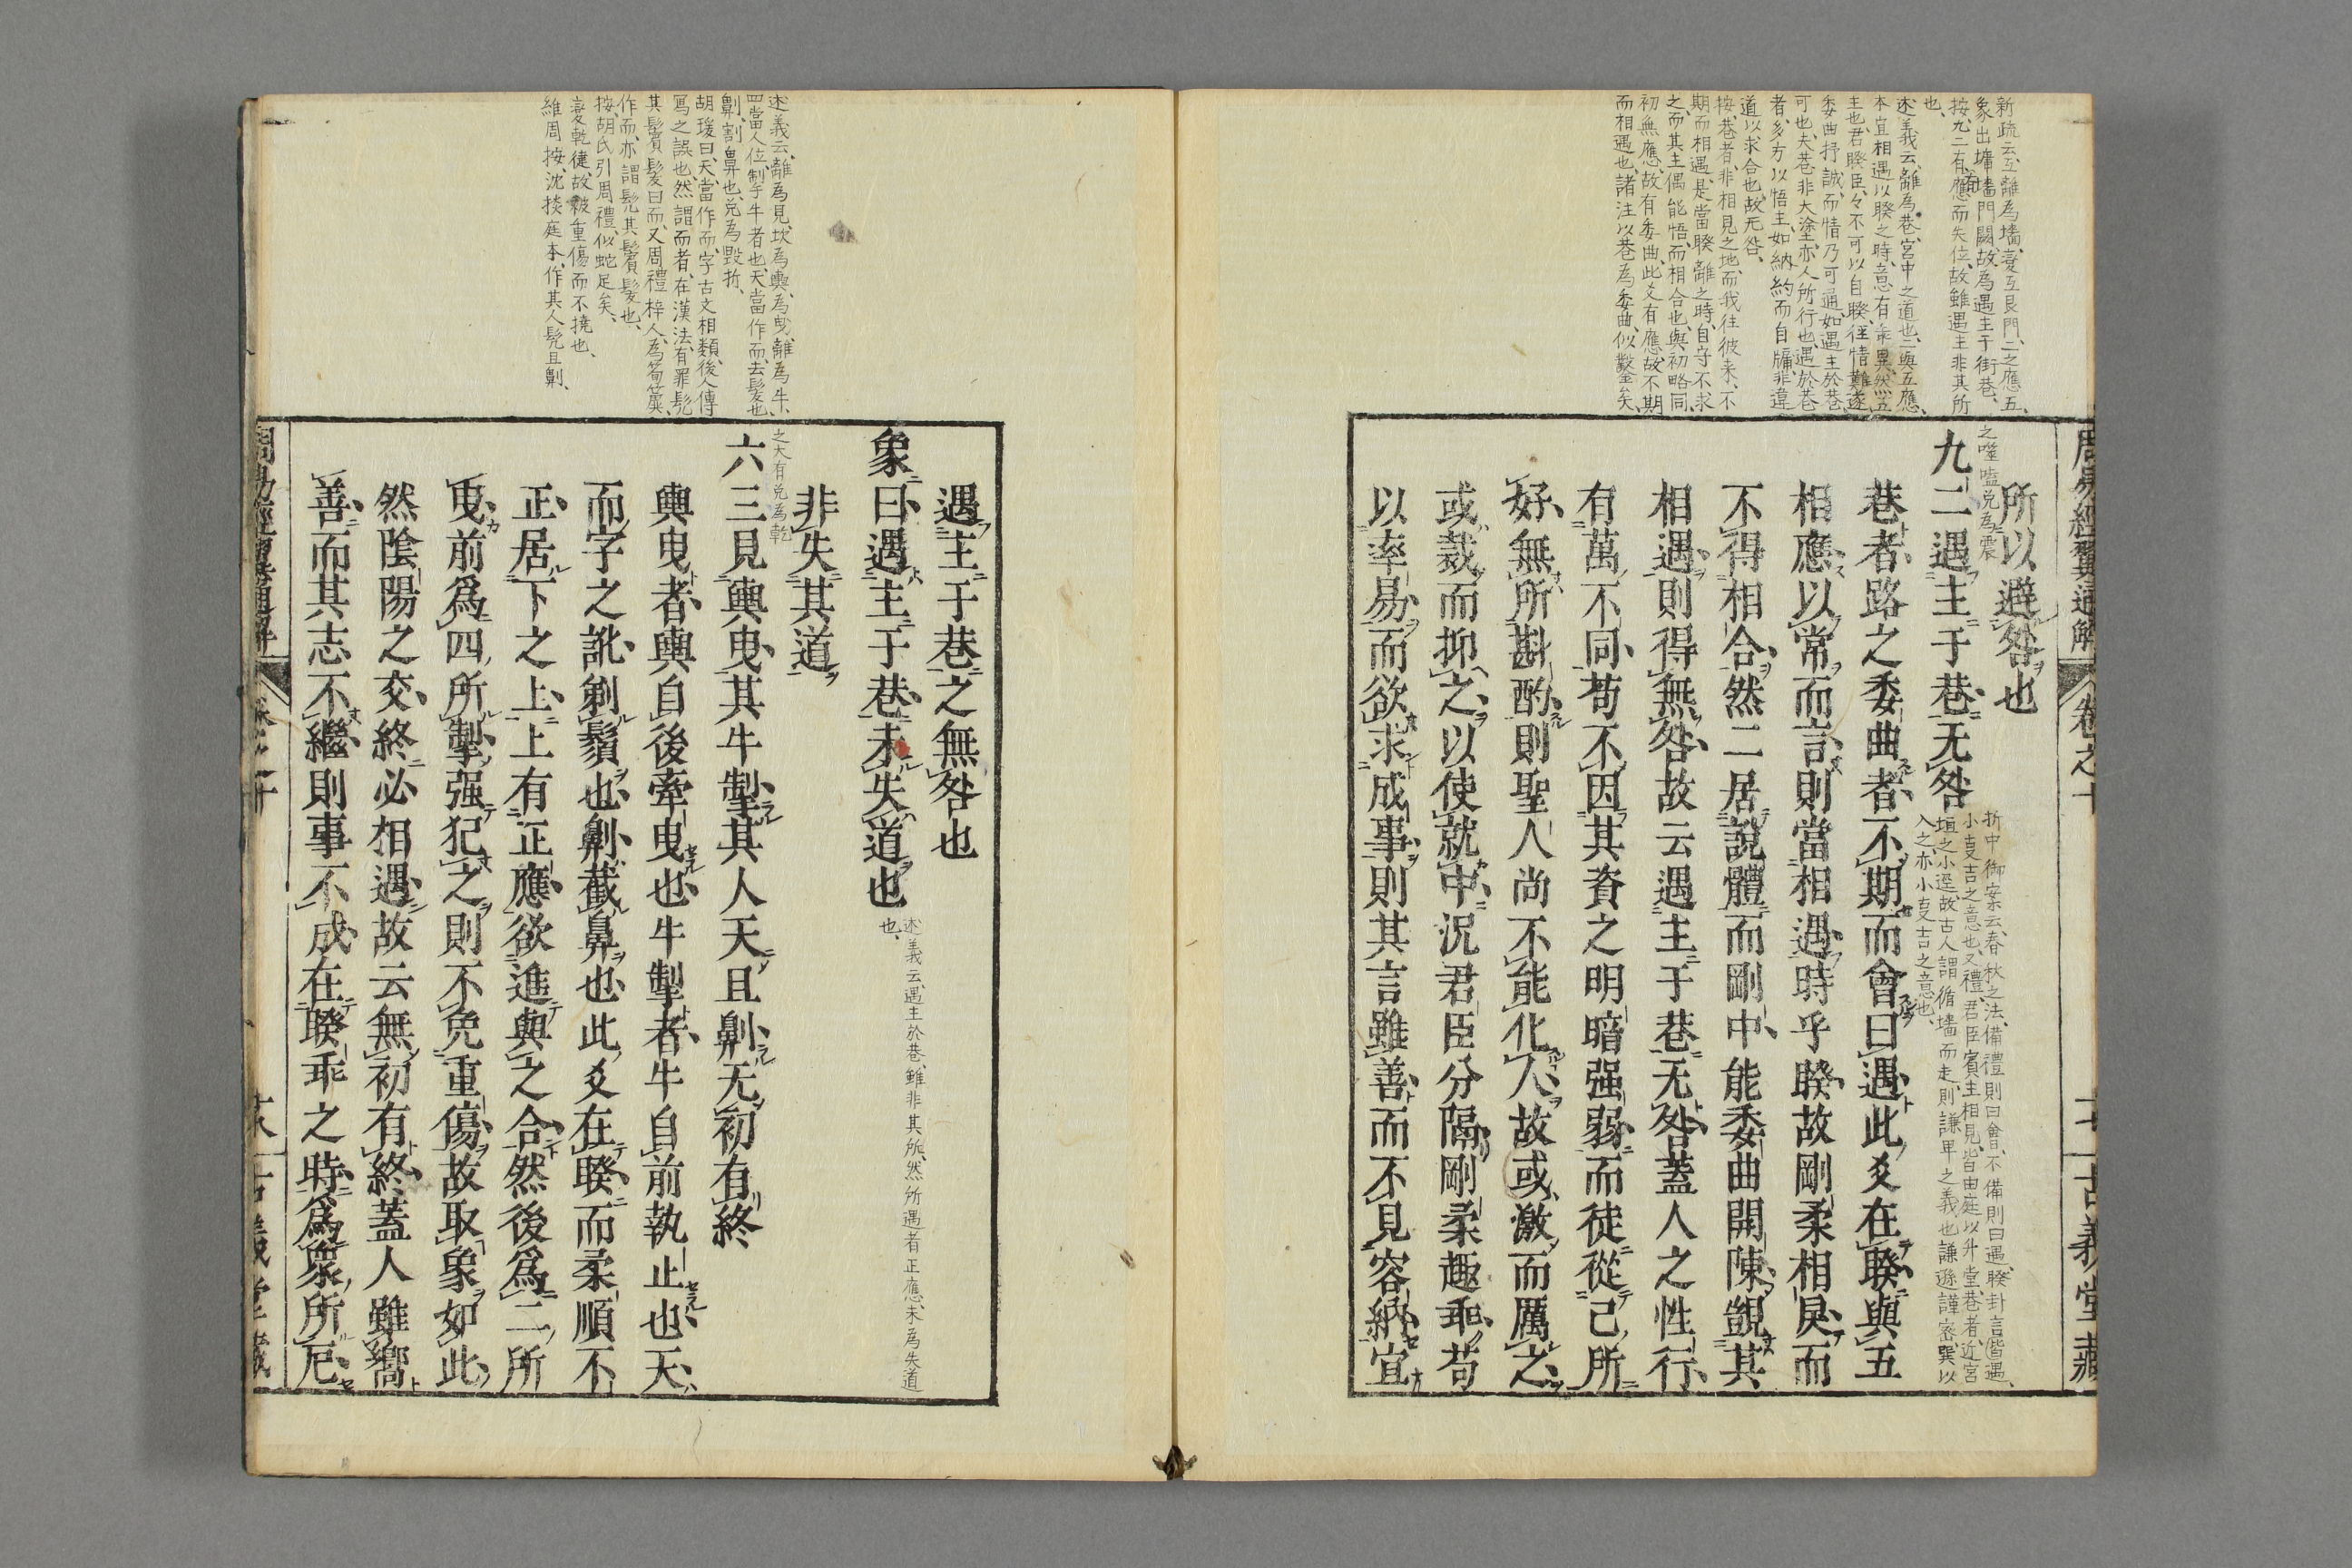 周易經翼通解
卷之十
古義堂藏
新疏云互離為墻、変互艮門、二之應五、
象出墉墻門闕、故為遇主于街巷、
按九二有應而失位、故雖遇主非其所
也、
述義云、離為巷、宮中之道也、二與五應、
本宜相遇、以睽之時、意有乖異、然五
主也、君睽臣、々不可以自睽、徃情難遂、
委曲抒誠、而情乃可通、如遇主於巷
可也、夫巷非大塗、亦人所行也、遇於巷
者、多方以悟主、如納約而自牖、非違
道以求合也、故无咎、
按、巷者、非相見之地、而我往彼来、不
期而相遇、是當睽離之時、自守不求
之、而其主偶能悟、而相合也、與初略同、
初無應、故有委曲、此爻有應、故不期
而相遇也、諸注以巷為委曲、似鑿矣、
所以避咎也
之噬嗑兑為震
九二遇主于巷无咎
折中御案云、春秋之法、備禮則曰會、不備則曰遇、睽卦言皆遇、
小事吉之意也、又禮、君臣賓主相見、皆由庭以升堂、巷者、近宮
垣之小逕、故古人謂循墻而走、則謙卑之義也、謙遜謹密、巽以
入之、亦小事吉之意也、
巷者路之委曲者不期而會曰遇此爻在睽與五
相應以常而言則當相遇時乎睽故剛柔相㒵而
不得相合然二居說體而剛中能委曲開陳覬其
相遇則得無咎故云遇主于巷无咎蓋人之性行
有萬不同苟不因其資之明暗强弱而徒從己所
好無所斟酌則聖人尚不能化人故或激而厲之
或裁而抑之以使就中況君臣分隔剛柔趣乖苟
以率易而欲求成事則其言雖善而不見容納宜
述義云、離為見、坎為輿、為曳、離為牛、
四當人位、制乎牛者也、天當作而、去髪也、
劓、割鼻也、兑為毀折、
胡瑗曰、天、當作而、字古文相類、後人傳
寫之誤也、然謂而者、在漢法、有罪髡
其鬢髪曰而、又周禮梓人、為筍簴、
作而、亦謂髡其鬢髪也、
按、胡氏引周禮、似蛇足矣、
変乾健、故被重傷而不撓也、
維周按、沈掞庭本、作其人髡且劓、
遇主于巷之無咎也
象曰遇主于巷未失道也
述義云、遇主於巷、雖非其所、然所遇者正應、未為失道
也、
非失其道
之大有兑為乾
六三見輿曳其牛掣其人天且劓无初有終
輿曳者輿自後牽曳也牛掣者牛自前執止也天
而字之訛剃鬚也劓截鼻也此爻在睽而柔順不
正居下之上上有正應欲進與之合然後爲二所
曳前爲四所掣强犯之則不免重傷故取象如此
然陰陽之交終必相遇故云無初有終蓋人雖嚮
善而其志不繼則事不成在睽乖之時爲衆所戹
周易經翼通解